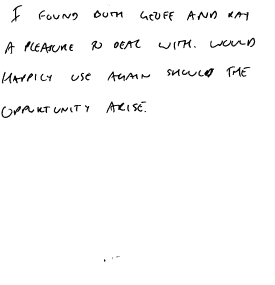 I FOUND BOTH GEOFF AND RAY
A PLEASURE TO DEAL WITH. WOULD
HAPPILY USE AGAIN SHOULD THE
OPPORTUNITY ARISE.